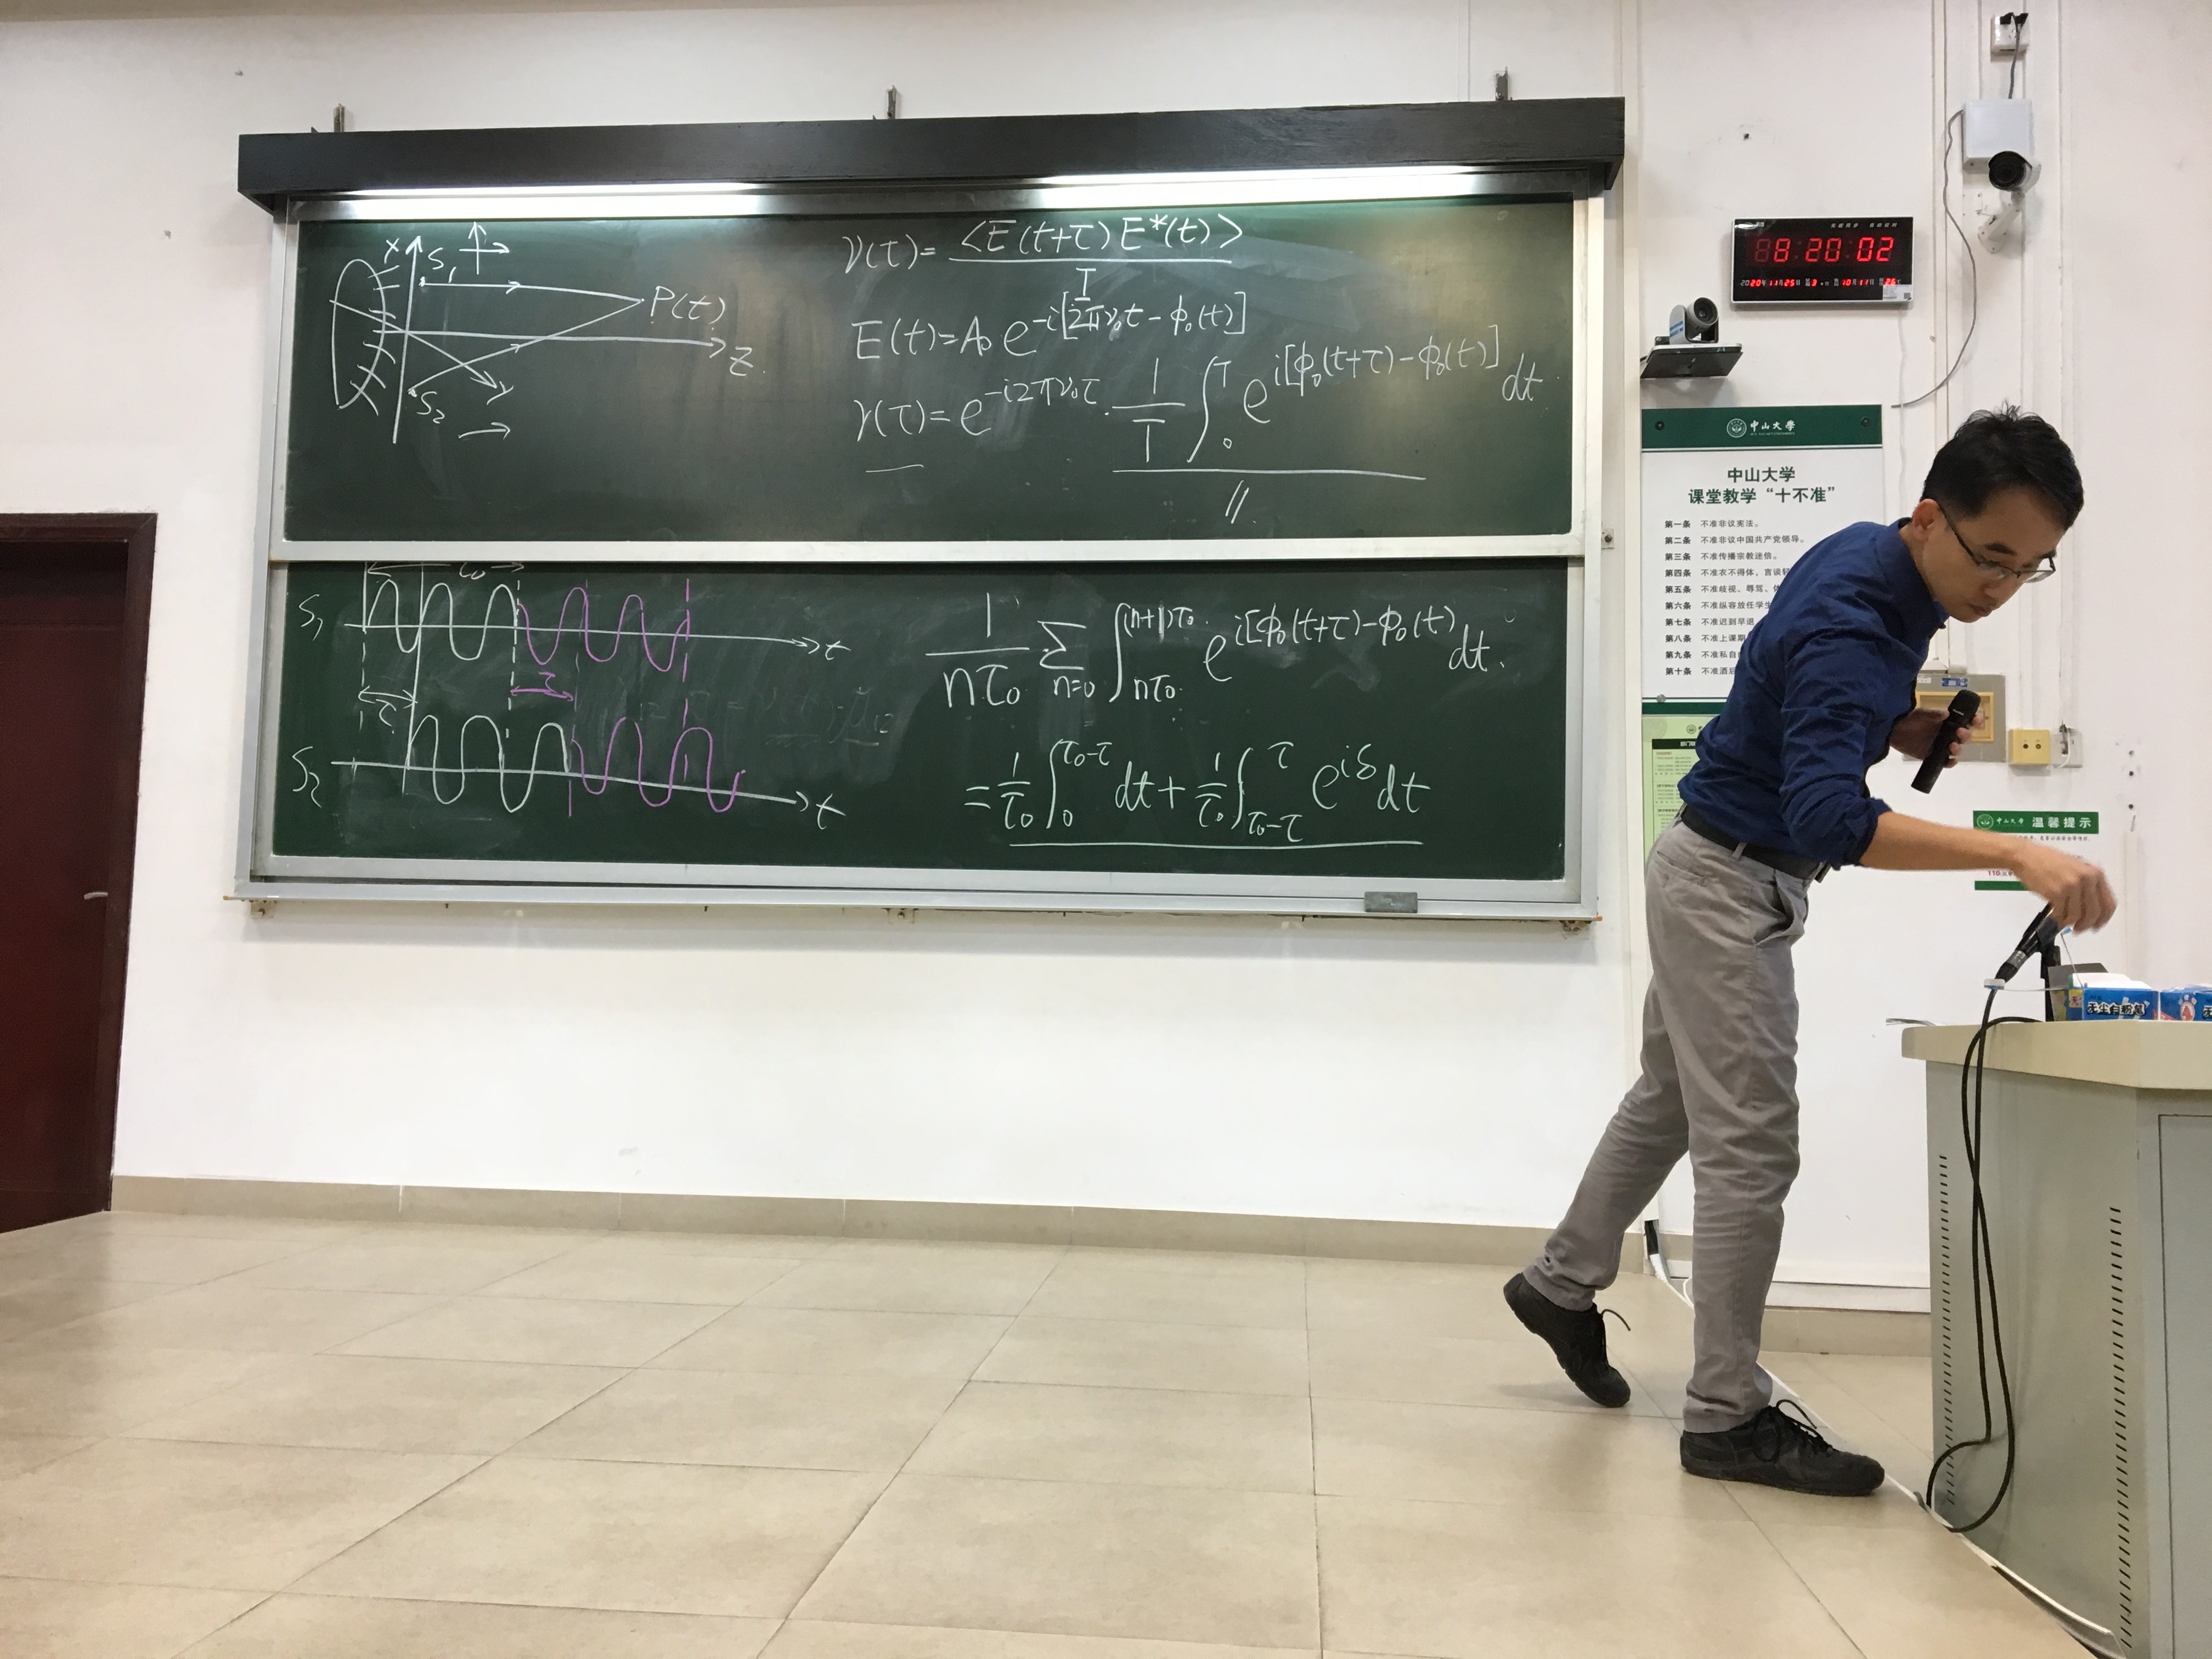 x
S₁
P(t)
z
y
S₂
γ(τ) = <E(t+τ) E*(t)> / I
E(t) = A₀ e^{-i[2πν₀t - ϕ₀(t)]}
γ(τ) = e^{-i2πν₀τ} · 1/T ∫₀^T e^{i[ϕ₀(t+τ) - ϕ₀(t)]} dt
S₁
τ₀
t
τ
τ
S₂
t
1/(nτ₀) Σ_{n=0} ∫_{nτ₀}^{(n+1)τ₀} e^{i[ϕ₀(t+τ) - ϕ₀(t)} dt.
= 1/τ₀ ∫₀^{τ₀-τ} dt + 1/τ₀ ∫_{τ₀-τ}^{τ} e^{iδ} dt
8:20 02
中山大学
中山大学
课堂教学“十不准”
第一条 不准非议宪法。
第二条 不准非议中国共产党领导。
第三条 不准传播宗教迷信。
第四条 不准衣不得体,言谈
第五条 不准歧视、辱骂、
第六条 不准纵容放任学生
第七条 不准迟到早退
第八条 不准上课期
第九条 不准私自
第十条 不准酒后
中山大学 温馨提示
110
无尘白粉笔